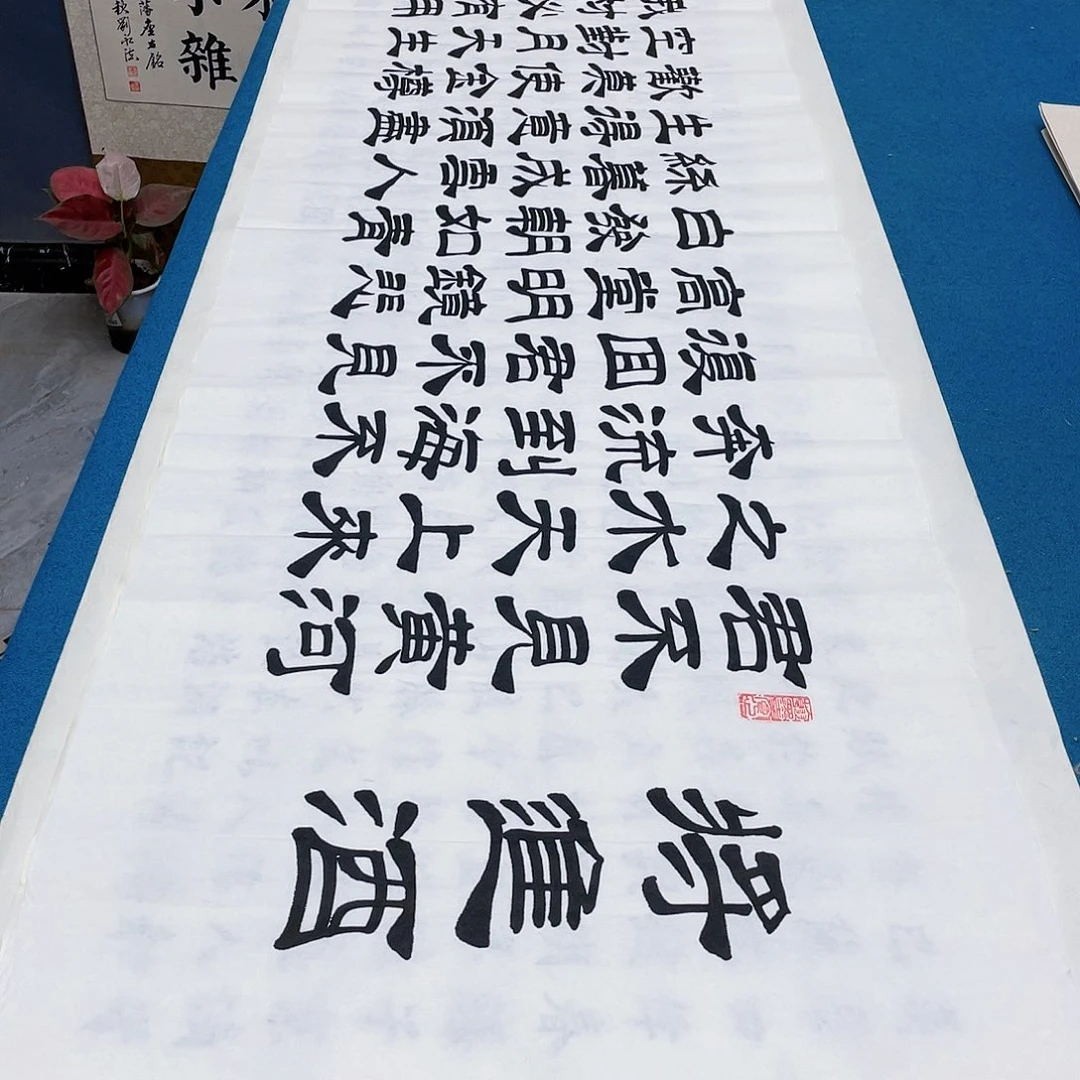 將進酒
君不見黃河
之水天上來
奔流到海不
復回君不見
高堂明鏡悲
白髮朝如青
絲暮成雪人
生得意須盡
歡莫使金樽
空對月天生
材必有用
雜